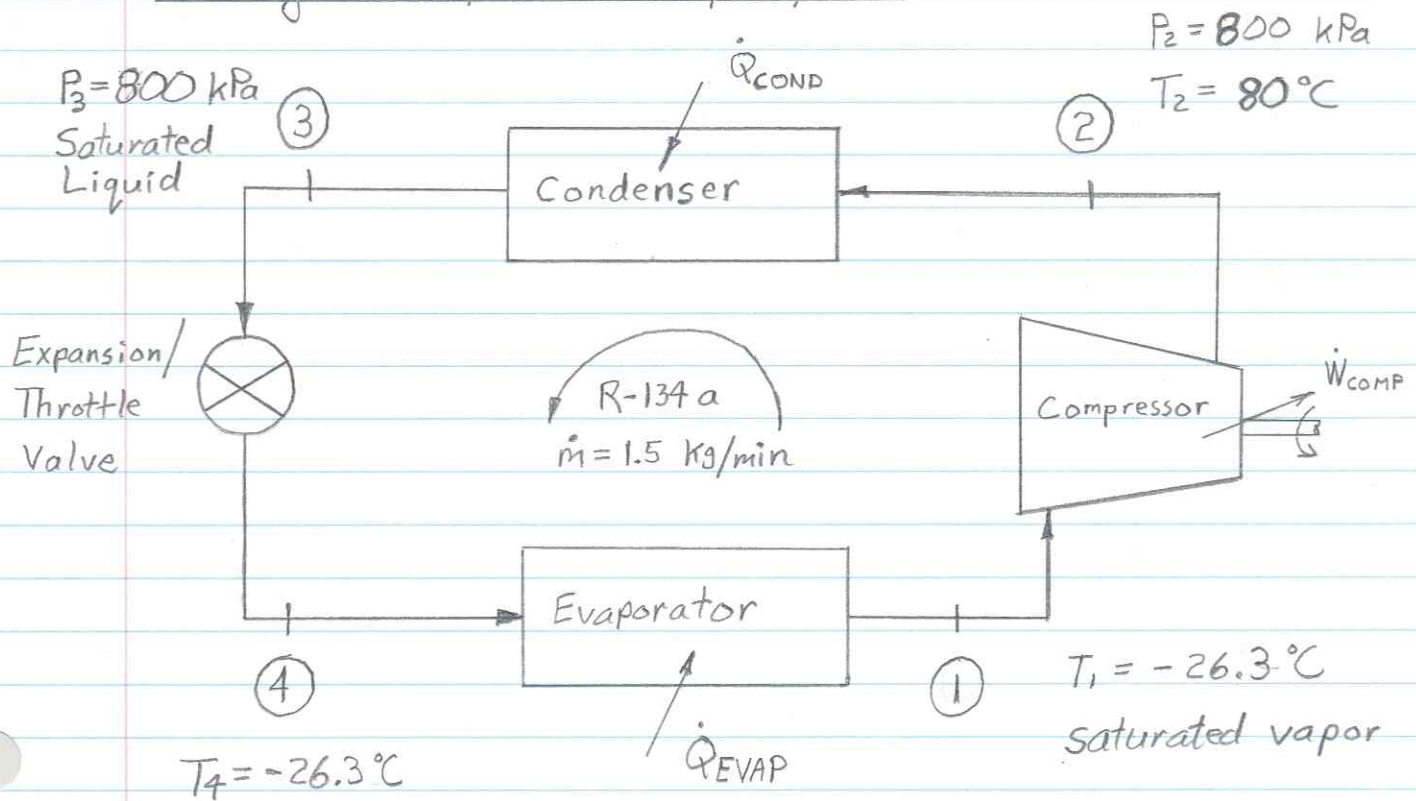 P₂ = 800 kPa
T₂ = 80°C
P₃ = 800 kPa
Saturated
Liquid
③
Q̇COND
②
Condenser
Expansion/
Throttle
Valve
R-134a
ṁ = 1.5 kg/min
Compressor
ẆCOMP
Evaporator
④
①
T₁ = -26.3°C
saturated vapor
T₄ = -26.3°C
Q̇EVAP